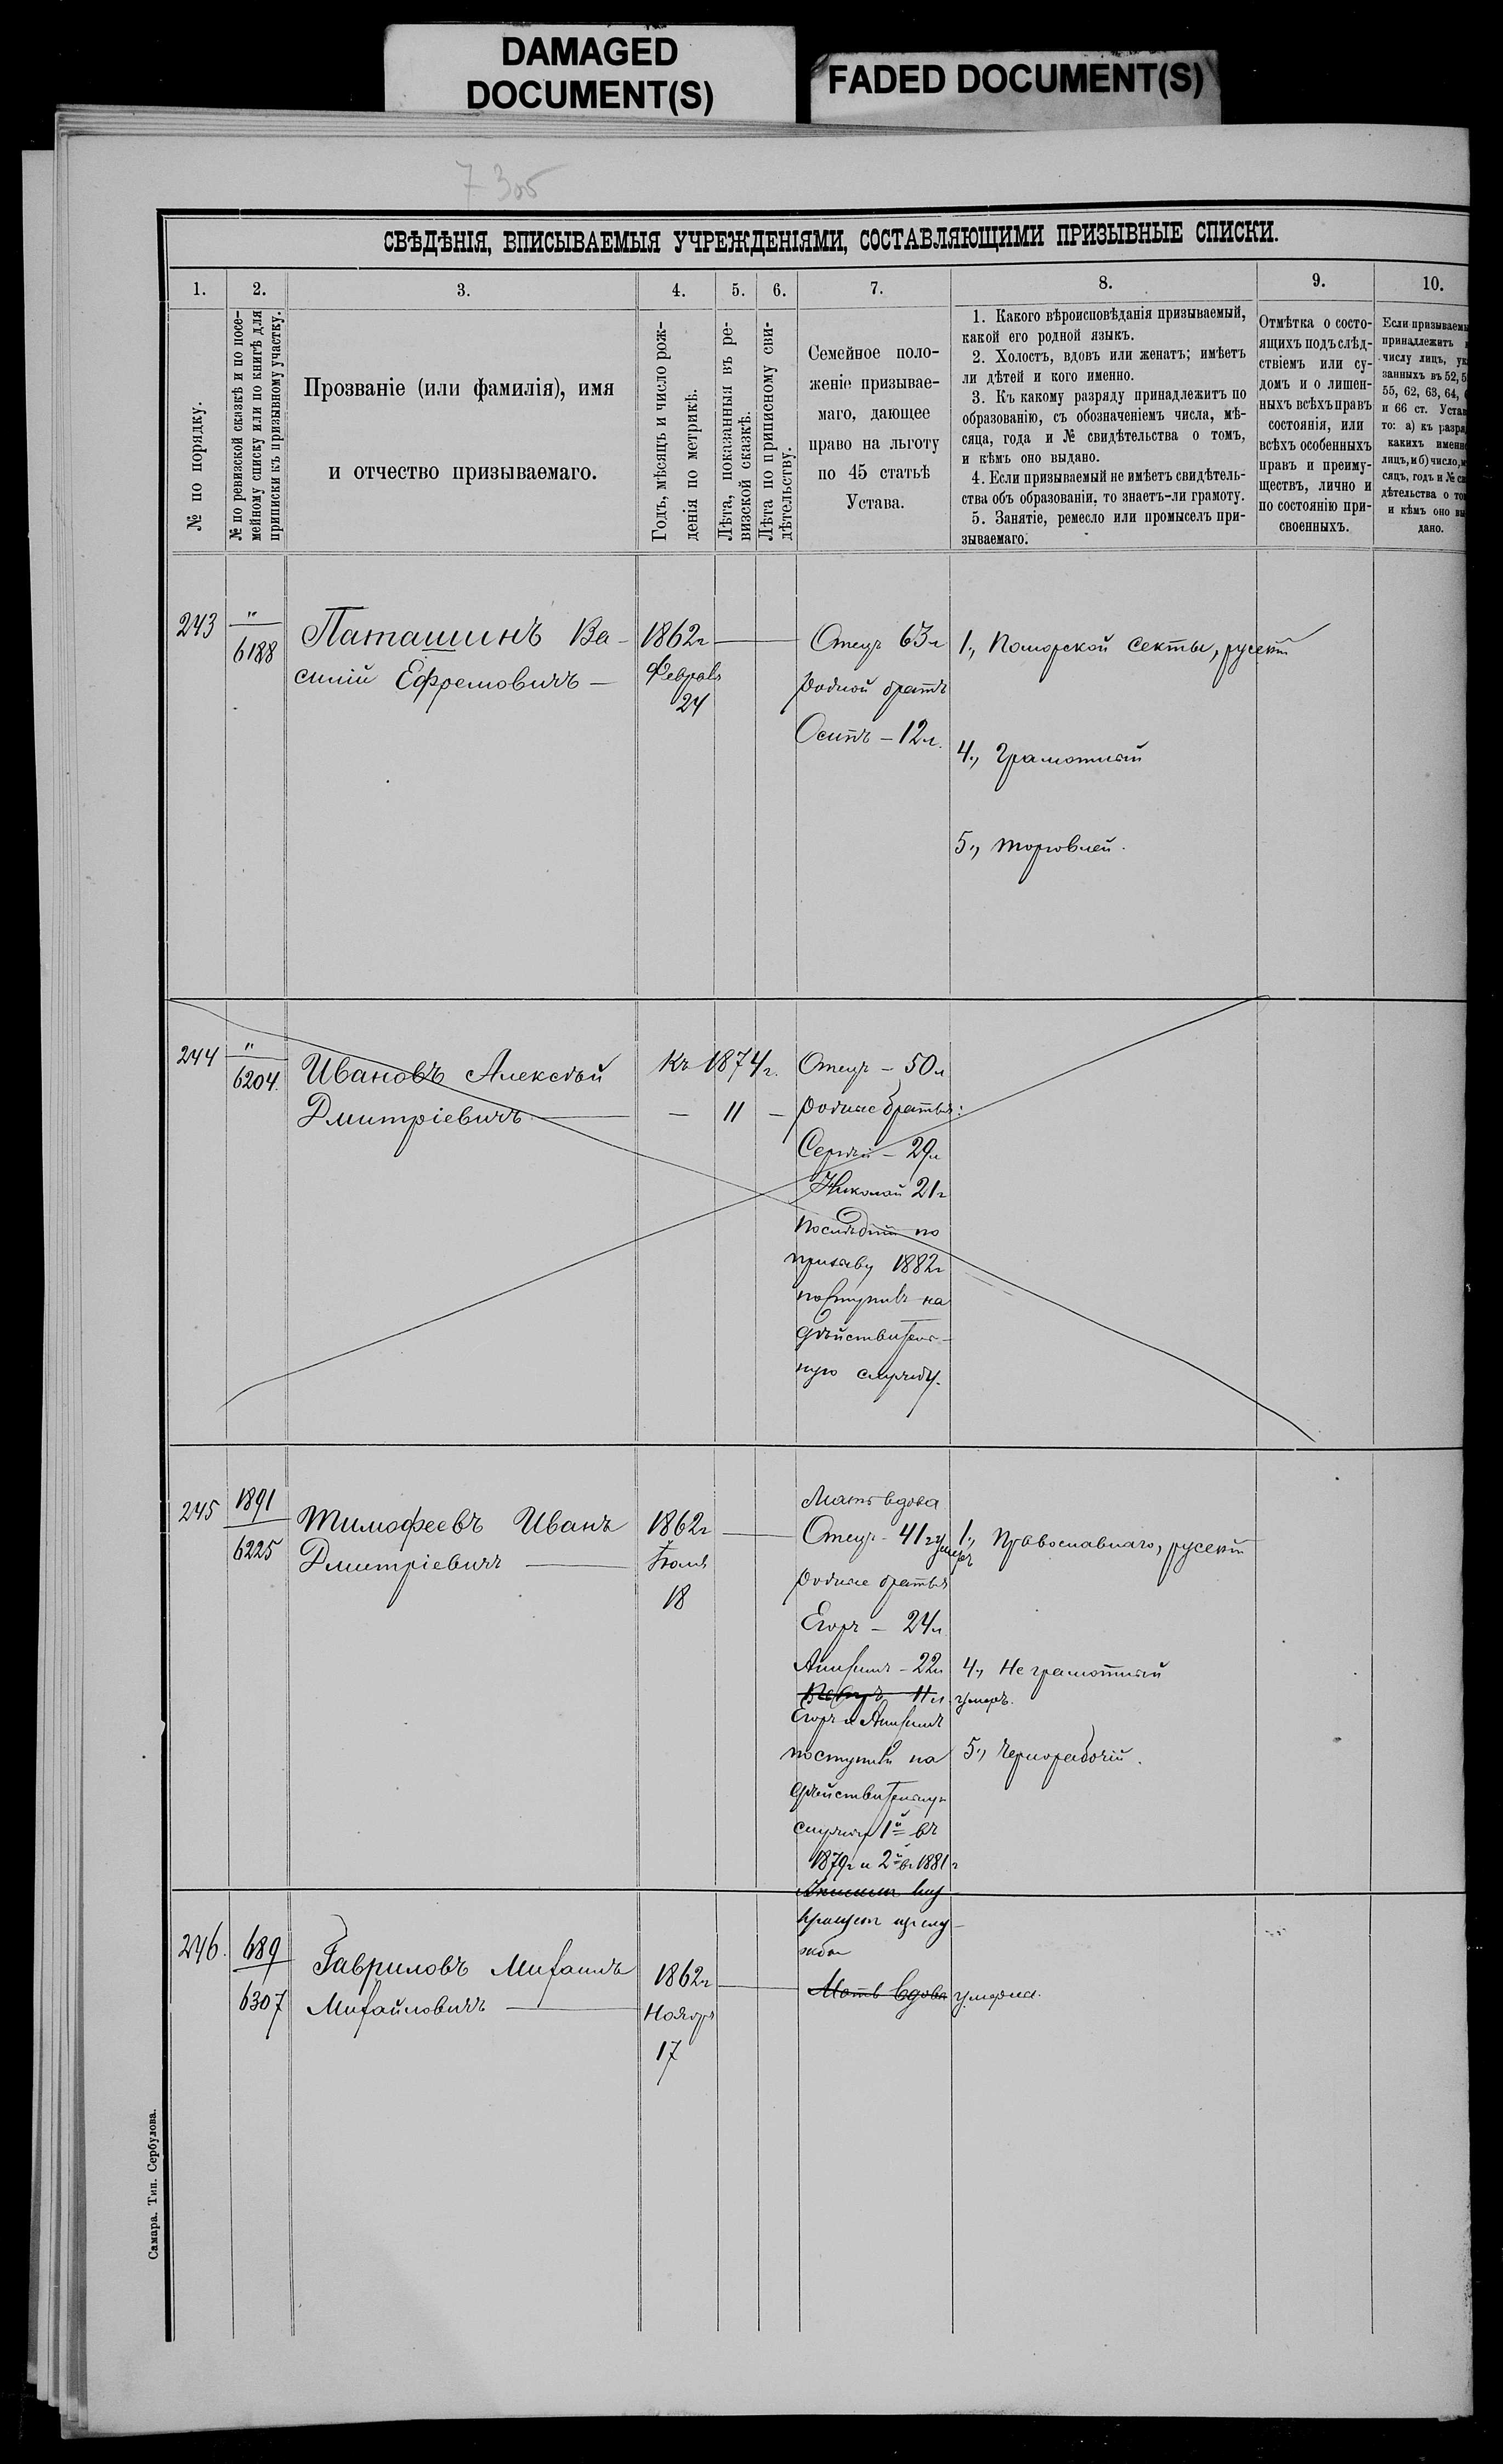 DAMAGED
DOCUMENT(S)
FADED DOCUMENT(S)
7 305
СВѢДѢНІЯ, ВПИСЫВАЕМЫЯ УЧРЕЖДЕНІЯМИ, СОСТАВЛЯЮЩИМИ ПРИЗЫВНЫЕ СПИСКИ.
1. 2. 3. 4. 5. 6. 7. 8. 9. 10.
№ по порядку.
№ по ревизской сказкѣ и по посе-
мейному списку или по книгѣ для
приписки къ призывному участку.
Прозваніе (или фамилія), имя
и отчество призываемаго.
Годъ, мѣсяцъ и число рож-
денія по метрикѣ.
Лѣта, показанныя въ ре-
визской сказкѣ.
Лѣта по приписному сви-
дѣтельству.
Семейное поло-
женіе призывае-
маго, дающее
право на льготу
по 45 статьѣ
Устава.
1. Какого вѣроисповѣданія призываемый,
какой его родной языкъ.
2. Холостъ, вдовъ или женатъ; имѣетъ
ли дѣтей и кого именно.
3. Къ какому разряду принадлежитъ по
образованію, съ обозначеніемъ числа, мѣ-
сяца, года и № свидѣтельства о томъ,
и кѣмъ оно выдано.
4. Если призываемый не имѣетъ свидѣтель-
ства объ образованіи, то знаетъ-ли грамоту.
5. Занятіе, ремесло или промыселъ при-
зываемаго.
Отмѣтка о состо-
ящихъ подъ слѣд-
ствіемъ или су-
домъ и о лишен-
ныхъ всѣхъ правъ
состоянія, или
всѣхъ особенныхъ
правъ и преиму-
ществъ, лично и
по состоянію при-
своенныхъ.
Если призываемы
принадлежитъ
числу лицъ, ук
занныхъ въ 52, 5
55, 62, 63, 64,
и 66 ст. Устав
то: а) къ разря
какихъ именн
лицъ, и б) число, м
сяцъ, годъ и № св
дѣтельства о то
и кѣмъ оно вы
дано.
243
"
6188
Паташинъ Ва-
силій Ефремовичъ —
1862г
Февраля
24
Отецъ 63л
родной братъ
Осипъ - 12л.
1., Поморской секты, русскій
4., Грамотный
5., торговлей.
244
"
6204.
Ивановъ Алексѣй
Дмитріевичъ
Къ 1874г.
— 11 —
Отецъ - 50л
родные братья:
Сергѣй - 29л
Николай 21г
Послѣдній по
призыву 1882г
поступилъ на
дѣйствитель-
ную службу.
245
1891
6225
Тимофеевъ Иванъ
Дмитріевичъ
1862г
Іюля
18
Мать вдова
Отецъ - 41г умеръ
родные братья
Егоръ - 24л
- 22л
11л. умеръ.
Егоръ и
поступили на
дѣйствительную
службу 1й въ
1879г и 2й въ 1881г
1., Православнаго, русскій
4., Не грамотный
5., Чернорабочій.
246.
689
6307
Гавриловъ Михаилъ
Михайловичъ
1862г
Ноября
17
Мать вдова умерла.
Самара. Тип. Сербулова.